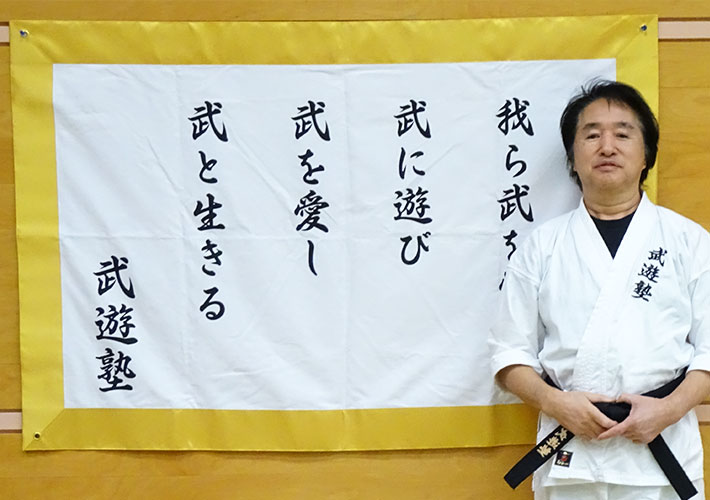 我ら武を
武に遊び
武を愛し
武と生きる
武遊塾
武遊塾